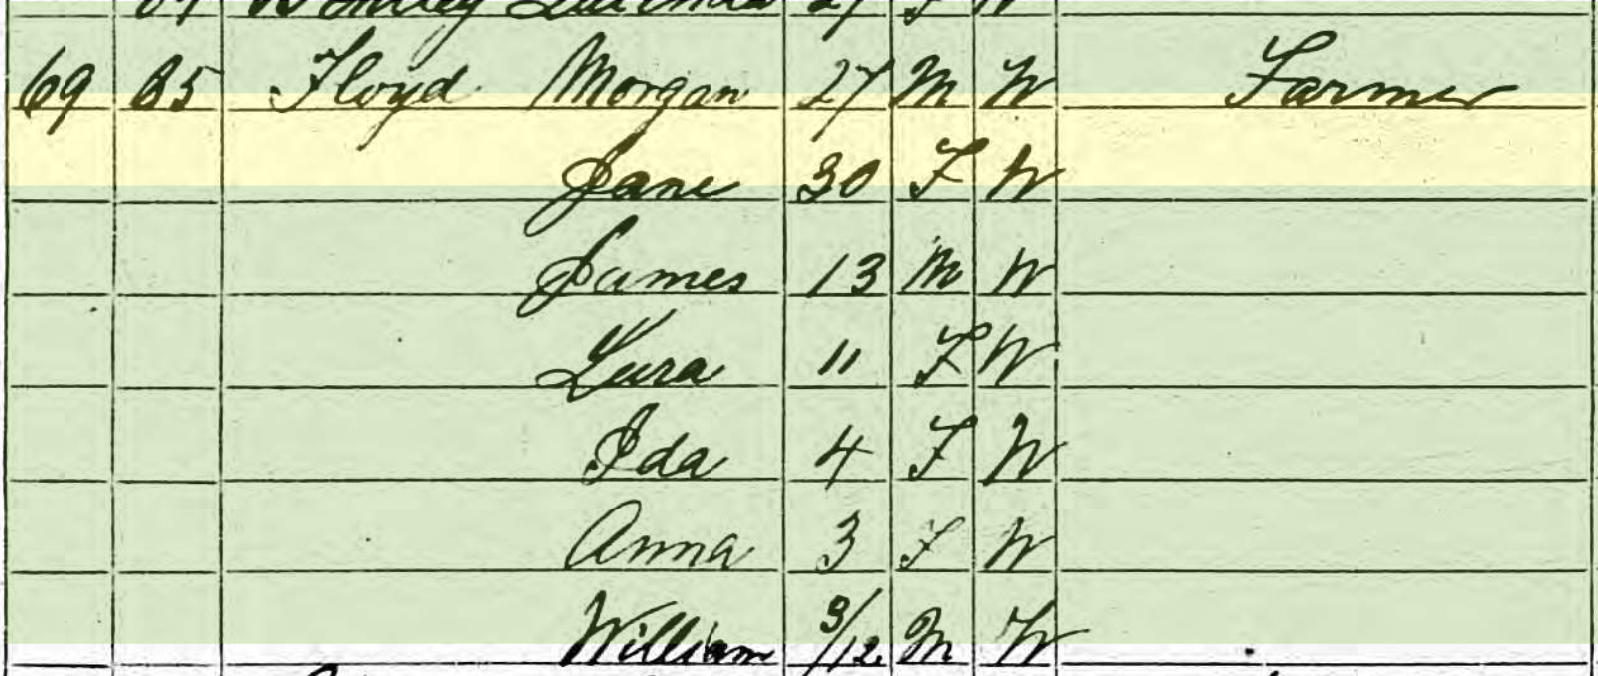 Lucinda 27 F W
69 85 Floyd Morgan 27 M W Farmer
Jane 30 F W
James 13 M W
Lura 11 F W
Ida 4 F W
Anna 3 F W
William 3/12 M W